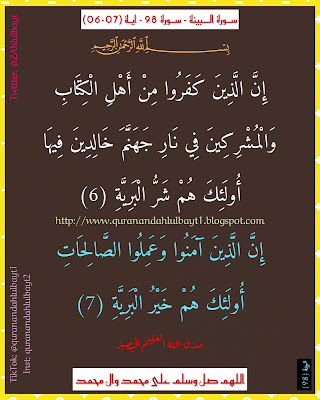 سورة البينة - سورة 98 - اية (07-06)
بِسْمِ اللَّهِ الرَّحْمَنِ الرَّحِيمِ
إِنَّ الَّذِينَ كَفَرُوا مِنْ أَهْلِ الْكِتَابِ
وَالْمُشْرِكِينَ فِي نَارِ جَهَنَّمَ خَالِدِينَ فِيهَا
أُولَئِكَ هُمْ شَرُّ الْبَرِيَّةِ (6)
http://www.quranandahlulbayt1.blogspot.com
إِنَّ الَّذِينَ آمَنُوا وَعَمِلُوا الصَّالِحَاتِ
أُولَئِكَ هُمْ خَيْرُ الْبَرِيَّةِ (7)
صدق الله العليم البصير
اللهم صل وسلم على محمد وال محمد
Twitter: @ZAhlulbayt
TikTok: @quranandahlulbayt1
Inst: quranandahlulbayt2